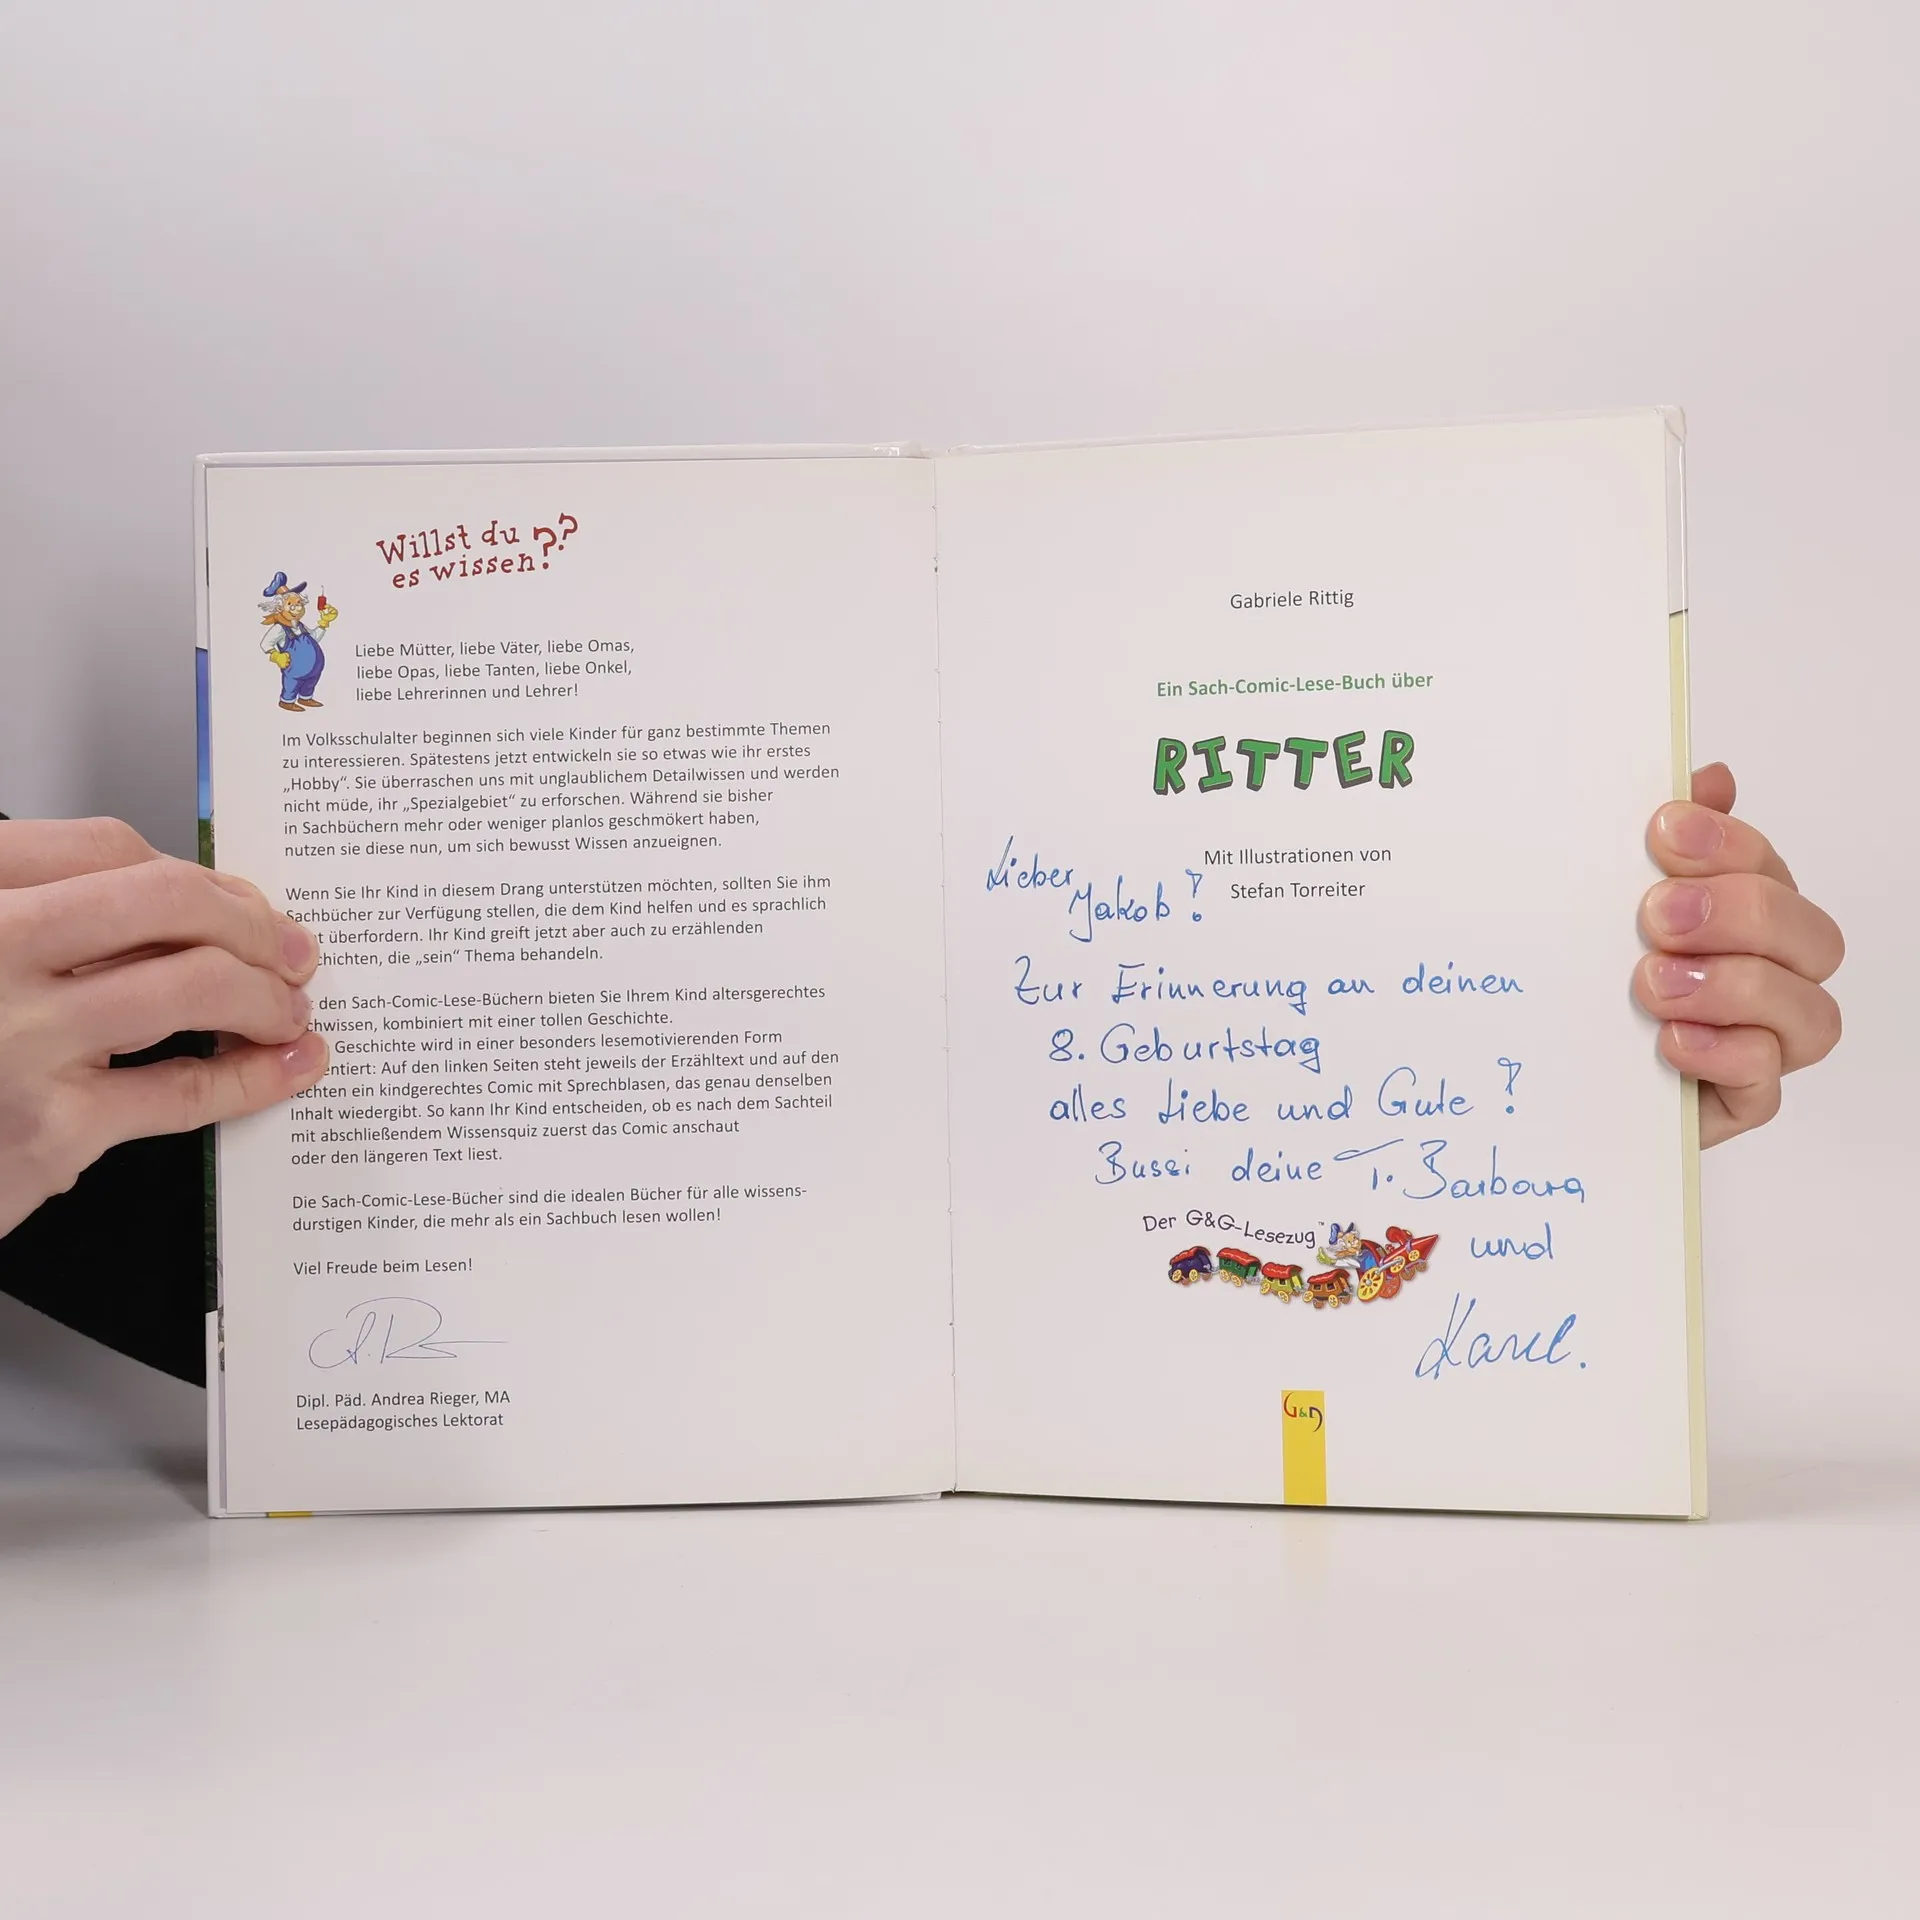 Willst du
es wissen???
Liebe Mütter, liebe Väter, liebe Omas,
liebe Opas, liebe Tanten, liebe Onkel,
liebe Lehrerinnen und Lehrer!
Im Volksschulalter beginnen sich viele Kinder für ganz bestimmte Themen
zu interessieren. Spätestens jetzt entwickeln sie so etwas wie ihr erstes
„Hobby“. Sie überraschen uns mit unglaublichem Detailwissen und werden
nicht müde, ihr „Spezialgebiet“ zu erforschen. Während sie bisher
in Sachbüchern mehr oder weniger planlos geschmökert haben,
nutzen sie diese nun, um sich bewusst Wissen anzueignen.
Wenn Sie Ihr Kind in diesem Drang unterstützen möchten, sollten Sie ihm
Sachbücher zur Verfügung stellen, die dem Kind helfen und es sprachlich
überfordern. Ihr Kind greift jetzt aber auch zu erzählenden
chichten, die „sein“ Thema behandeln.
den Sach-Comic-Lese-Büchern bieten Sie Ihrem Kind altersgerechtes
chwissen, kombiniert mit einer tollen Geschichte.
Geschichte wird in einer besonders lesemotivierenden Form
entiert: Auf den linken Seiten steht jeweils der Erzähltext und auf den
echten ein kindgerechtes Comic mit Sprechblasen, das genau denselben
Inhalt wiedergibt. So kann Ihr Kind entscheiden, ob es nach dem Sachteil
mit abschließendem Wissensquiz zuerst das Comic anschaut
oder den längeren Text liest.
Die Sach-Comic-Lese-Bücher sind die idealen Bücher für alle wissens-
durstigen Kinder, die mehr als ein Sachbuch lesen wollen!
Viel Freude beim Lesen!
Dipl. Päd. Andrea Rieger, MA
Lesepädagogisches Lektorat
Gabriele Rittig
Ein Sach-Comic-Lese-Buch über
RITTER
Mit Illustrationen von
Stefan Torreiter
Lieber
Jakob!
Zur Erinnerung an deinen
8. Geburtstag
alles Liebe und Gute!
Bussi deine T. Barbara
und
Karl.
Der G&G-Lesezug™
G&G